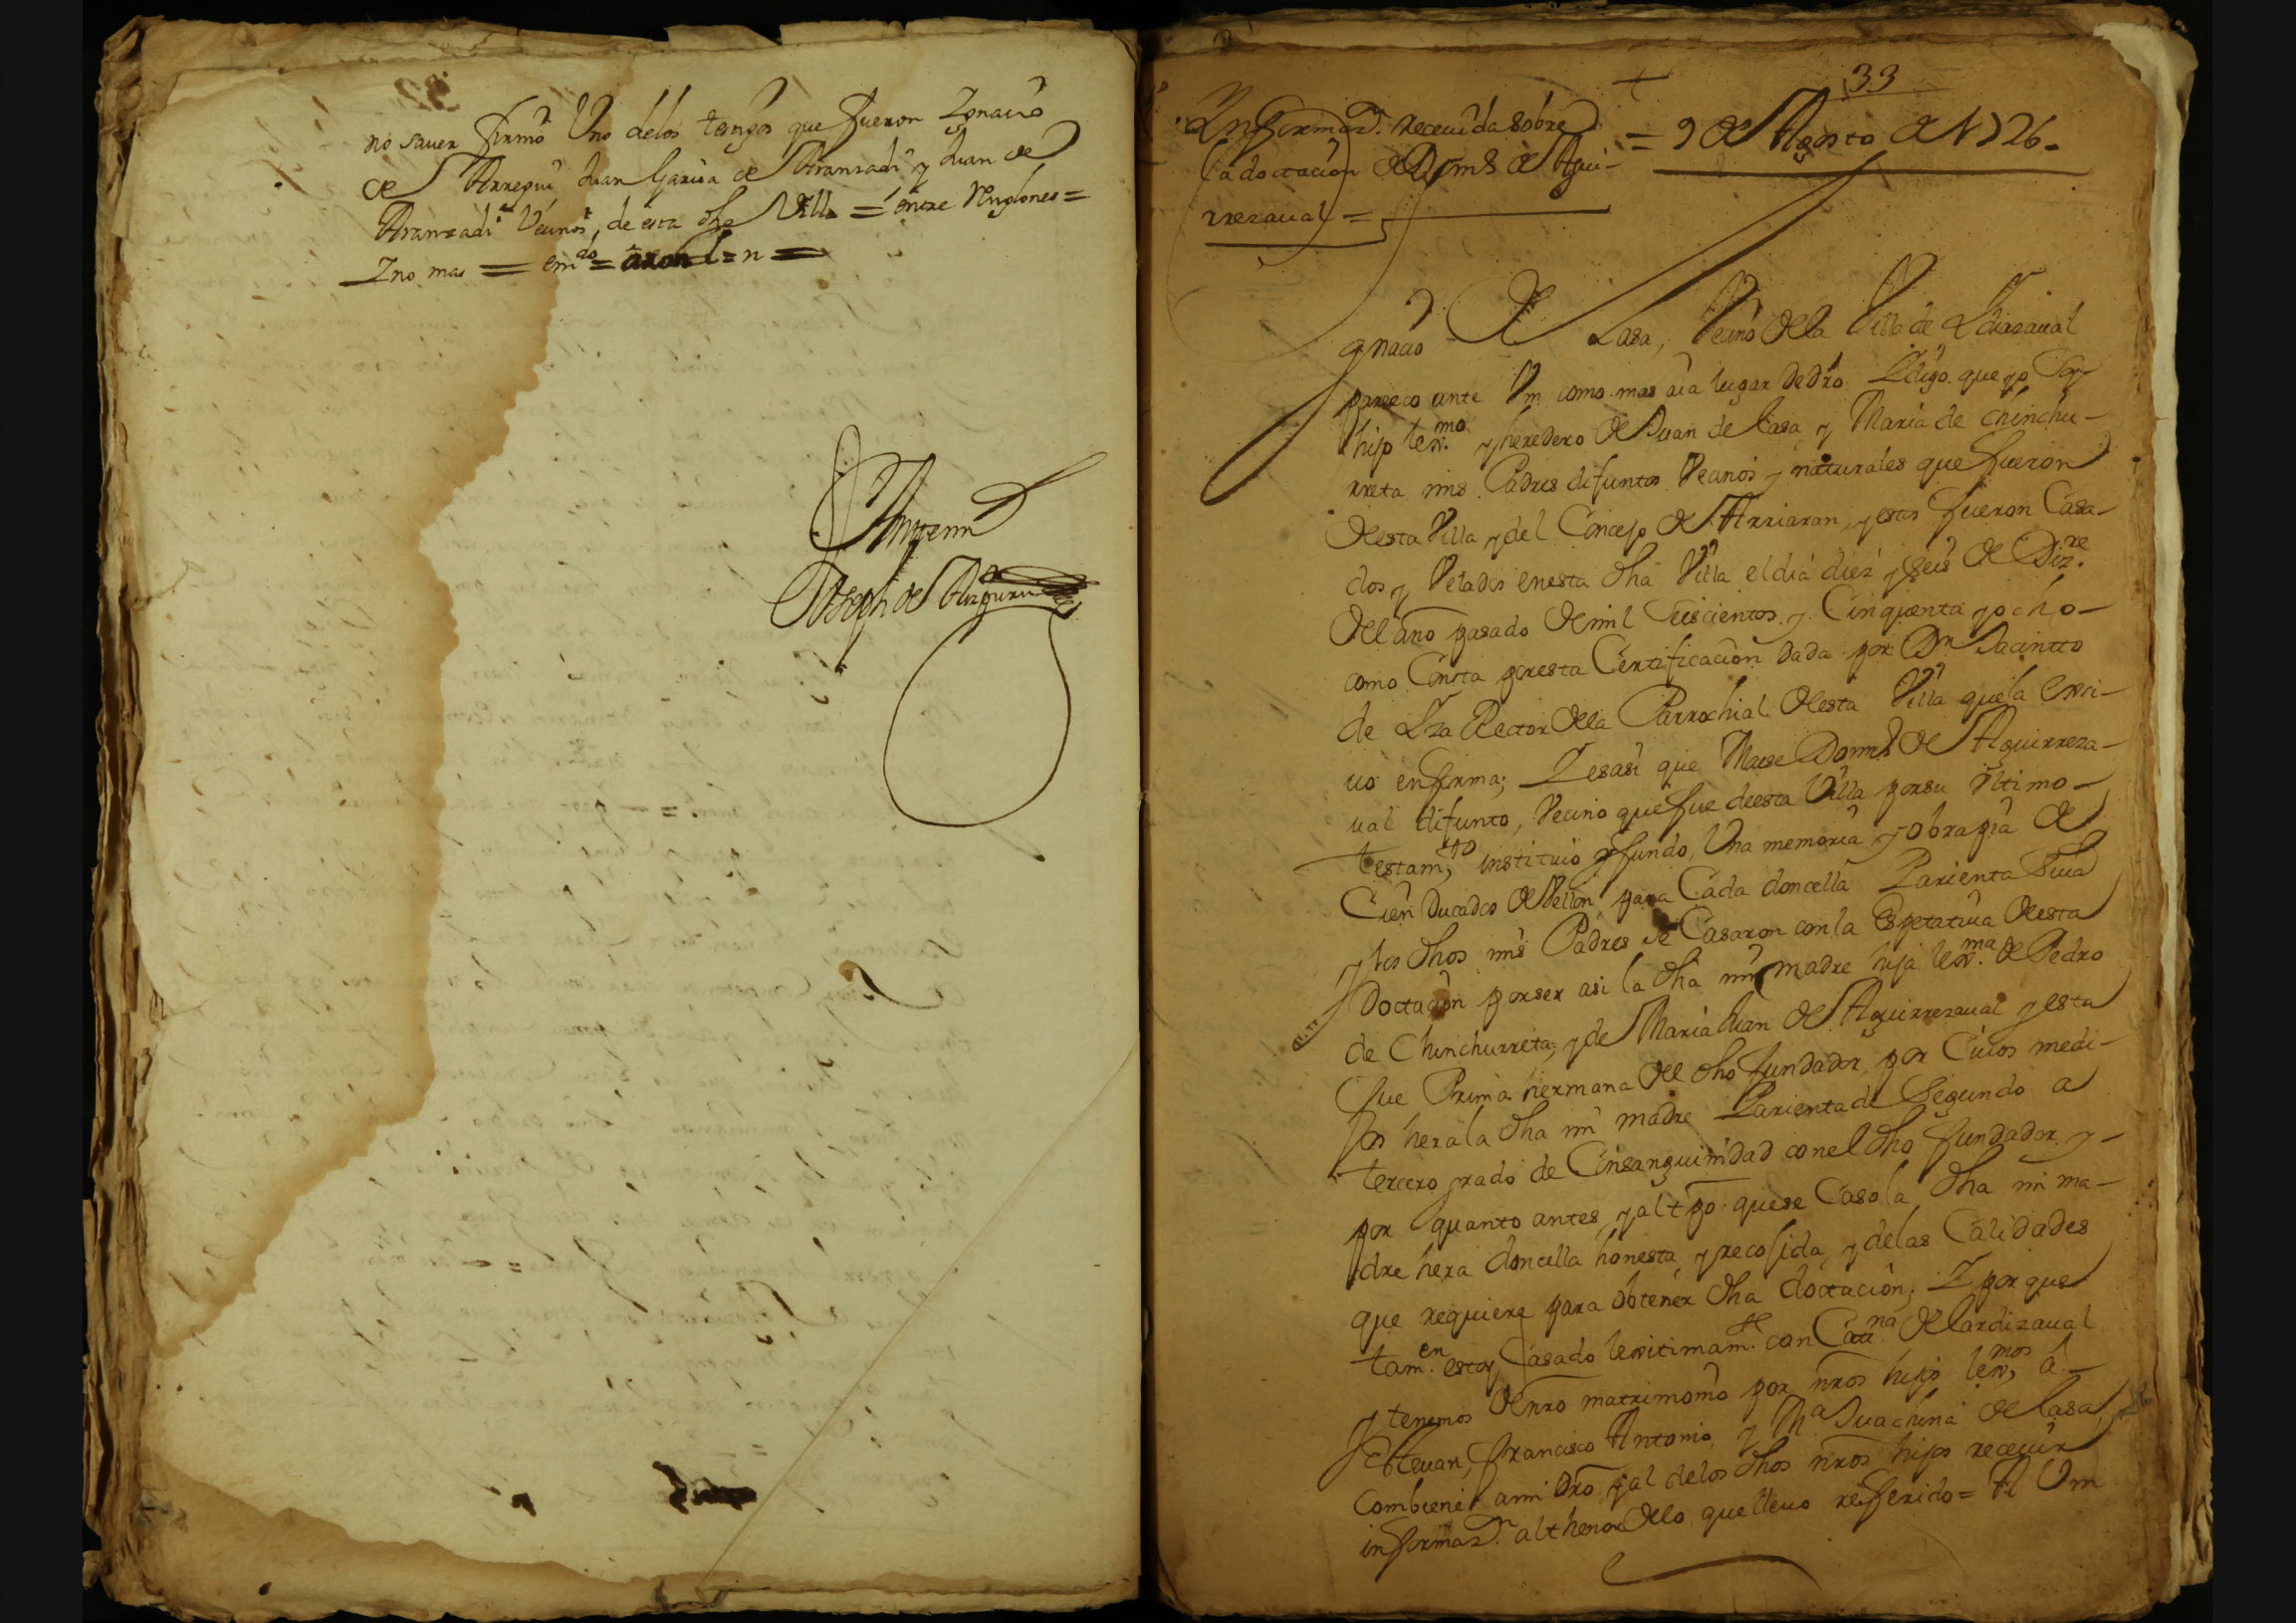 no sauer firmo Uno delos testigos que fueron Ygnacio
de Arregui Juan Garcia de Aranzadi y Juan de
Aranzadi Vecinos, de esta dha Villa = entre Renglones =
Y no mas = emdo = = n =
Antemi
Joseph de Aizpuru
33
Informaon. receuida sobre
la doctacion de Doms de Agui-
rrezaual =
= 9 de Agosto de 1726.
Ygnacio de Lasa, Vecino dela Villa de Ydiazaual
parezco ante Vm como mas aia lugar de dro Y digo. que yo soy
hijo lexmo. y heredero de Juan de lasa y Maria de chinchu-
rreta mis Padres difuntos Vecinos y naturales que fueron
desta Villa y del Concejo de Arriaran, y estos fueron Casa-
dos y Velados en esta dha Villa el dia diez y seis de Dizre.
del año pasado de mil seiscientos y Cinquenta y ocho-
como Consta por esta Certificacion dada por Dn Jacintto
de Yza Rector dela Parrochial desta Villa que la exsi-
uo en forma; Y es asi que Maese Doms de Aguirreza-
ual difunto, Vecino que fue de esta Villa por su Vltimo-
testamto, instituio y fundo, Una memoria y obra pia de
Cien Ducados de Vellon para Cada doncella Parienta Suia
y los dhos mis Padres se Casaron con la Espetatiua desta
Doctacion por ser asi la dha mi madre hija lexma. de Pedro
de Chinchurreta, y de Maria Juan de Aguirrezaual y esta
fue Prima hermana del dho fundador, por Cuios medi-
os hera la dha mi madre Parienta de Segundo a
tercero grado de Consanguinidad con el dho fundador y-
por quanto antes, y al tpo que se Caso la dha mi ma-
dre hera doncella honesta, y recojida, y de las Calidades
que requiere para obtener dha doctacion; Y por que
tamen. estoy Casado lexitimamte. con Catana. de Lardizaual
y tenemos de nro matrimonio por nros hijos lexmos, a-
Esteuan, Francisco Antonio, y Ma Juachina de lasa,
Combiene a mi dro y al de los dhos nros hijos receuir
informazn. al thenor de lo que lleuo refferido = A Vm